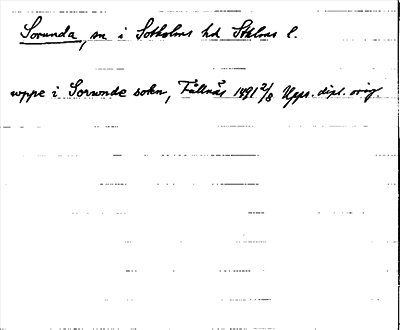 Sorunda, sn i Sotholms hd Sthlms l.
uppe i Sorunde sokn, Fållnäs 1491 2/8 Upps. dipl. orig.